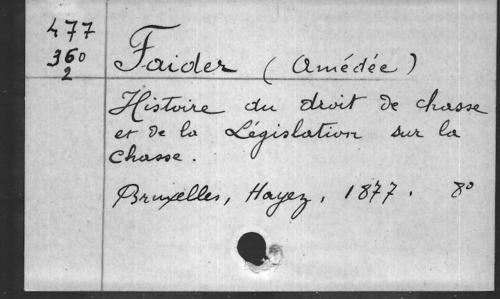 477
360
2
Faider (Amédée)
Histoire du droit de chasse
et de la Législation sur la
chasse.
Bruxelles, Hayez, 1877. 8º